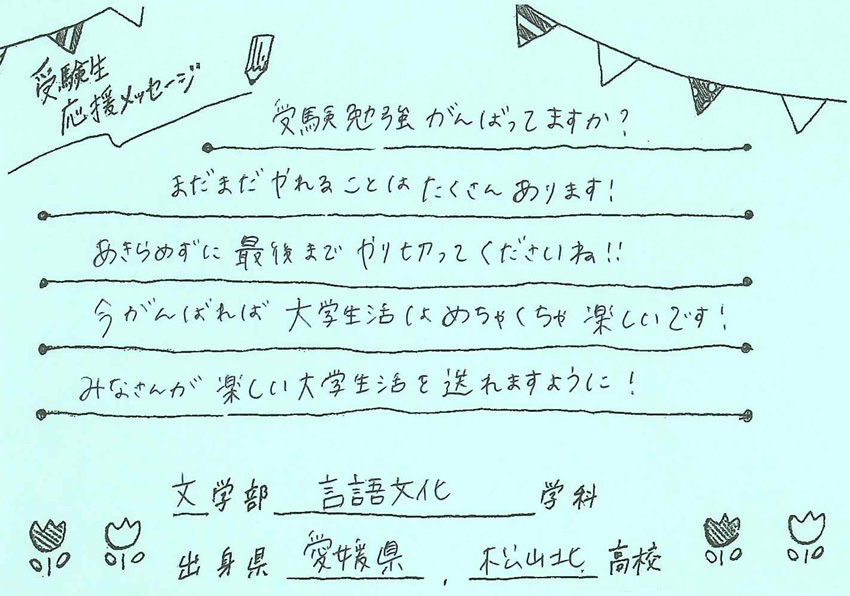 受験生
応援メッセージ
受験勉強がんばってますか?
まだまだやれることはたくさんあります!
あきらめずに最後までやり切ってくださいね!!
今がんばれば大学生活はめちゃくちゃ楽しいです!
みなさんが楽しい大学生活を送れますように!
文学部 言語文化 学科
出身県 愛媛県, 松山北 高校